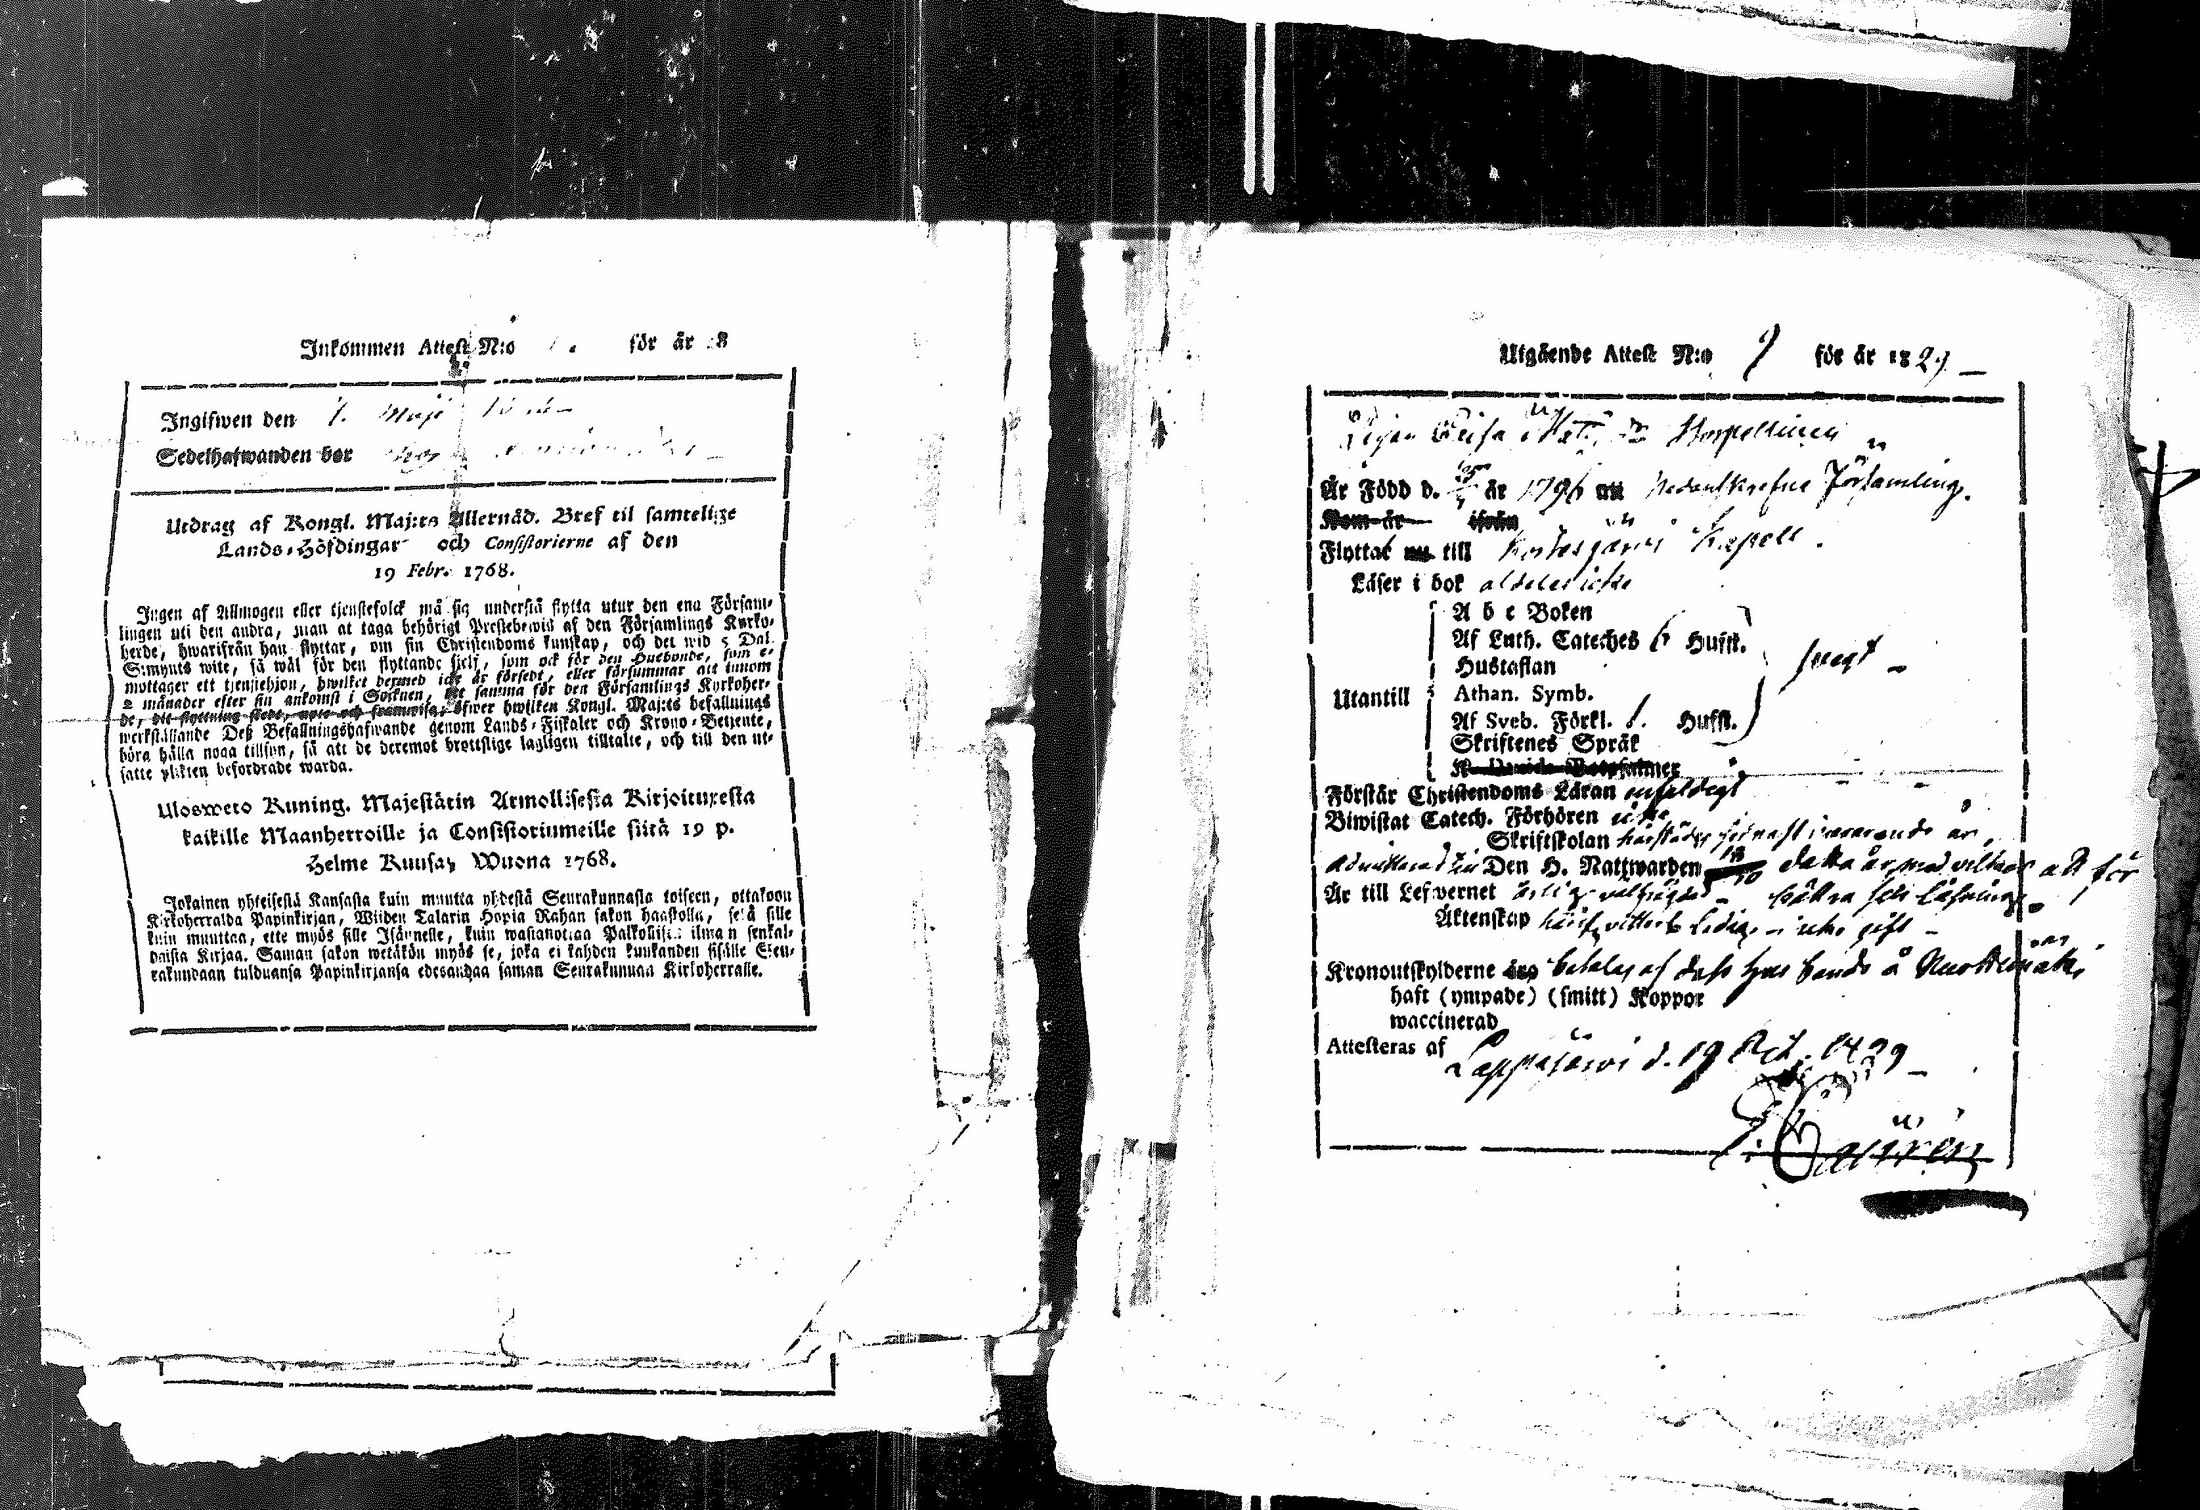 Inkommen Attest N:o för år 8
Ingifwen den 1. Maji
Sedelhafwanden bor
Utdrag af Kongl. Maj:ts Allernåd. Bref til samtelige
Lands-Höfdingar och Consistorierne af den
19 Febr. 1768.
Ingen af Allmogen eller tjenstefolck må sig understå flytta utur den ena Försam-
lingen uti den andra, utan at taga behörigt Prestebewis af den Församlings Kyrko-
herde, hwarifrån han flyttar, om sin Christendoms kunskap, och det wid 5 Dal.
S:mynts wite, så wäl för den flyttande sielf, som ock för den Husbonde, som e-
mottager ett tjenstehjon, hwilket dermed icke är försedt, eller försummar att innom
2 månader efter sin ankomst i Socknen, det samma för den Församlings Kyrkoher-
de, dit flyttning skedt, upte och framwisa, öfwer hwilken Kongl. Maj:ts befallnings
werkställande Deß Befallningshafwande genom Lands-Fiskaler och Krono-Betjente,
böra hålla noga tillsyn, så att de deremot brottslige lagligen tilltalte, och till den ut-
satte plikten befordrade warda.
Ulosweto Kuning. Majestätin Armollisesta Kirjoituxesta
kaikille Maanherroille ja Consistoriumeille siitä 19 p.
Helme Kuusa, Wuona 1768.
Jokainen yhteisestä Kansasta kuin muutta yhdestä Seurakunnasta toiseen, ottakoon
Kirkoherralda Papinkirjan, Wiiden Talarin Hopia Rahan sakon haastolla, sekä sille
kuin muuttaa, ette myös sille Isännelle, kuin wastanottaa Palkollisen ilman senkal-
daista Kirjaa. Saman sakon wetäkön myös se, joka ei kahden kuukanden sisälle Seu-
rakundaan tulduansa Papinkirjansa edesandaa saman Seurakunnan Kirkoherralle.
Utgående Attest N:o 9 för år 1829
Pigan Caisa Matts dr
Är Född d. år 1796 uti nedanskrefne Församling.
Kom år ifrån
Flyttat nu till Kortesjärvi Kapell.
Läser i bok aldeles icke
Utantill
A b c Boken
Af Luth. Cateches 6 Hufst.
Hustaflan
Athan. Symb.
Af Sveb. Förkl. 1. Hufst.
Skriftenes Språk
K. Davids Botpsalmer
svagt
Förstår Christendoms Läran enfaldigt
Biwistat Catech. Förhören icke
Skriftskolan härstädes sednast innevarande år,
admitterad till Den H. Nattwarden detta år med vilkor att för
Är till Lefvernet ärlig välfrägdad bättra sin läsning
Äktenskap härifr. vitterl. ledig icke gift
Kronoutskylderne äro betalas af dess husbonde å Nurkkamäki
haft (ympade) (smitt) Koppor
waccinerad
Attesteras af Lappajärvi d. 19 Oct. 1829